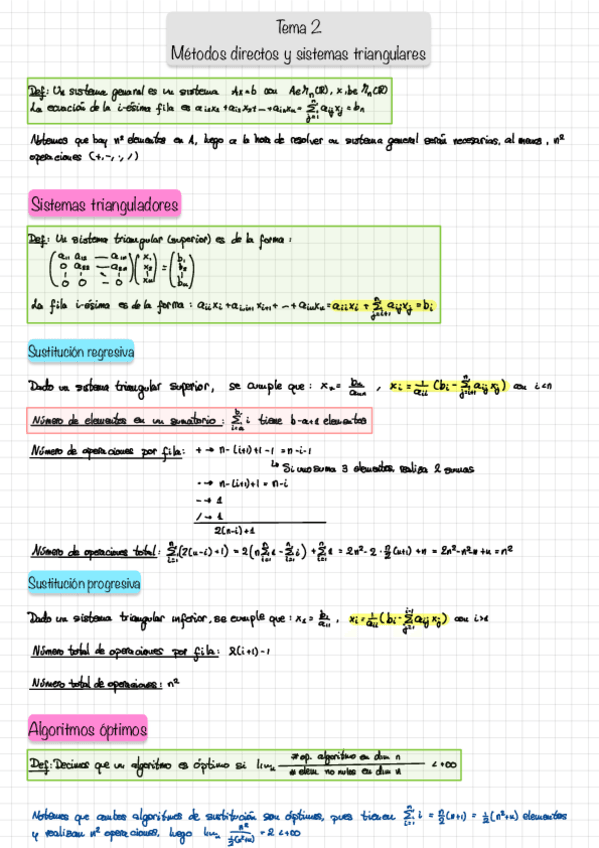 Tema 2
Métodos directos y sistemas triangulares
Def: Un sistema general es un sistema Ax=b con A∈ℳₙ(ℝ), x,b∈ℳₙ(ℝ)
La ecuación de la i-ésima fila es aᵢ₁x₁+aᵢ₂x₂+...+aᵢₙxₙ= ∑ⱼ₌₁ⁿ aᵢⱼxⱼ=bₙ
Notemos que hay n² elementos en A, luego a la hora de resolver un sistema general serán necesarias, al menos, n²
operaciones (+,-,·,/)
Sistemas trianguladores
Def: Un sistema triangular (superior) es de la forma:
(a₁₁ a₁₂ — a₁ₙ) (x₁) (b₁)
(0 a₂₂ — a₂ₙ) (x₂) = (b₂)
(0 0 - 0) (xₙ) (bₙ)
La fila i-ésima es de la forma: aᵢᵢxᵢ+aᵢ,ᵢ₊₁xᵢ₊₁+...+aᵢₙxₙ=aᵢᵢxᵢ+∑ⱼ₌ᵢ₊₁ⁿ aᵢⱼxⱼ=bᵢ
Sustitución regresiva
Dado un sistema triangular superior, se cumple que: xₙ=bₙ/aₙₙ, xᵢ=1/aᵢᵢ (bᵢ-∑ⱼ₌ᵢ₊₁ⁿ aᵢⱼxⱼ) con i<n
Número de elementos en un sumatorio: ∑ᵢ₌ₐᵇ i tiene b-a+1 elementos
Número de operaciones por fila: + → n-(i+1)+1-1=n-i-1
↳ Si uno suma 3 elementos, realiza 2 sumas
· → n-(i+1)+1=n-i
- → 1
/ → 1
2(n-i)+1
Número de operaciones total: ∑ᵢ₌₁ⁿ(2(n-i)+1)=2(n∑ᵢ₌₁ⁿ1-∑ᵢ₌₁ⁿi)+∑ᵢ₌₁ⁿ1=2n²-2·n/2(n+1)+n=2n²-n²-n+n=n²
Sustitución progresiva
Dado un sistema triangular inferior, se cumple que: x₁=b₁/a₁₁, xᵢ=1/aᵢᵢ(bᵢ-∑ⱼ₌₁ⁱ⁻¹aᵢⱼxⱼ) con i>1
Número total de operaciones por fila: 2(i+1)-1
Número total de operaciones: n²
Algoritmos óptimos
Def: Decimos que un algoritmo es óptimo si limₙ (# op. algoritmo en dim n)/(# elem no nulos en dim n) <+∞
Notemos que ambos algoritmos de sustitución son óptimos, pues tienen ∑ᵢ₌₁ⁿ i = n/2(n+1) = 1/2(n²+n) elementos
y realizan n² operaciones, luego limₙ n²/(1/2(n²+n)) = 2 <+∞